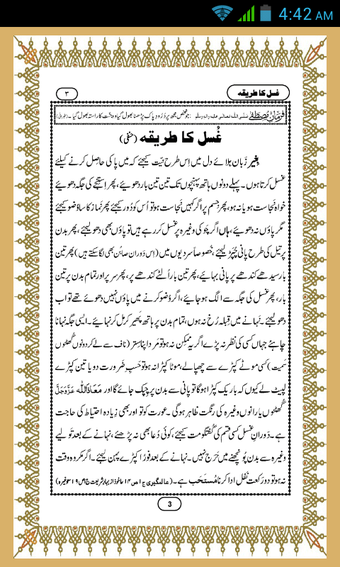 4:42 AM
غسل کا طریقہ
۳
فرمانِ مصطفےٰ
غُسل کا طریقہ (حنفی)
بغیر زَبان ہلائے دل میں اس طرح نیّت کیجئے کہ میں پاکی حاصل کرنے کیلئے
غسل کرتا ہوں۔ پہلے دونوں ہاتھ پہنچوں تک تین تین بار دھوئیے، پھر اِستنجے کی جگہ دھوئیے
خواہ نَجاست ہو یا نہ ہو، پھر جسم پر اگر کہیں نَجاست ہو تو اُس کو دُور کیجئے پھر نَماز کا سا وُضو کیجئے
مگر پاؤں نہ دھوئیے، ہاں اگر چوکی وغیرہ پر غسل کر رہے ہیں تو پاؤں بھی دھو لیجئے، پھر بدن
پر تیل کی طرح پانی چُپَڑ لیجئے، خُصوصاً سردیوں میں (اس دَوران صابُن بھی لگا سکتے ہیں) پھر تین
بار سیدھے کندھے پر پانی بہائیے، پھر تین بار اُلٹے کندھے پر، پھر سر پر اور تمام بدن پر تین
بار، پھر غسل کی جگہ سے الگ ہو جائیے، اگر وُضو کرنے میں پاؤں نہیں دھوئے تھے تو اب
دھو لیجئے۔ نہانے میں قبلہ رُخ نہ ہوں، تمام بدن پر ہاتھ پھیر کر مل کر نہائیے۔ ایسی جگہ نہانا
چاہئے جہاں کسی کی نظر نہ پڑے اگر یہ ممکن نہ ہو تو مرد اپنا ستر (ناف سے لے کر دونوں گھٹنوں
سمیت) کسی موٹے کپڑے سے چھپا لے، موٹا کپڑا نہ ہو تو حسبِ ضَرورت دو یا تین کپڑے
لپیٹ لے کیوں کہ باریک کپڑا ہوگا تو پانی سے بدن پر چپک جائے گا اور مَعَاذَاللہ عَزَّوَجَلَّ
گھٹنوں یا رانوں وغیرہ کی رنگت ظاہر ہوگی۔ عورت کو تو اور بھی زیادہ احتیاط کی حاجت
ہے۔ دَورانِ غسل کسی قسم کی گفتگو مت کیجئے، کوئی دُعا بھی نہ پڑھئے، نہانے کے بعد تولیے
وغیرہ سے بدن پُونچھنے میں حَرَج نہیں۔ نہانے کے بعد فوراً کپڑے پہن لیجئے۔ اگر مکروہ وقت
نہ ہو تو دو رَکعت نَفل ادا کرنا مُستَحَب ہے۔
3